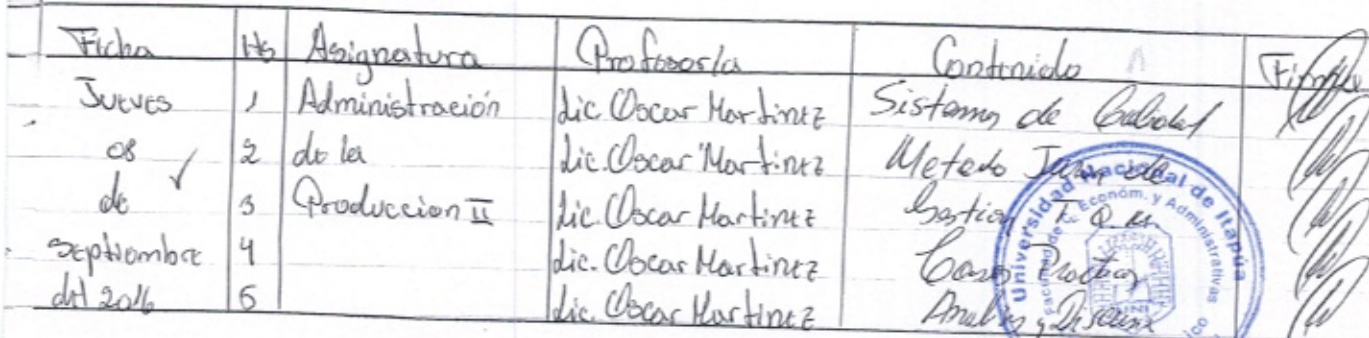 Fecha Hs Asignatura Profesor/a Contenido Firma
Jueves 1 Administración Lic. Oscar Martinez Sistemas de Calidad
08 2 de la Lic. Oscar Martinez Metodo Japon de
de 3 Produccion II Lic. Oscar Martinez Gestion T.Q.M.
septiembre 4 Lic. Oscar Martinez Casos Practicos
del 2016 5 Lic. Oscar Martinez Analisis y Discusion
Universidad Nacional de Itapúa
Facultad de Econom. y Administrativas